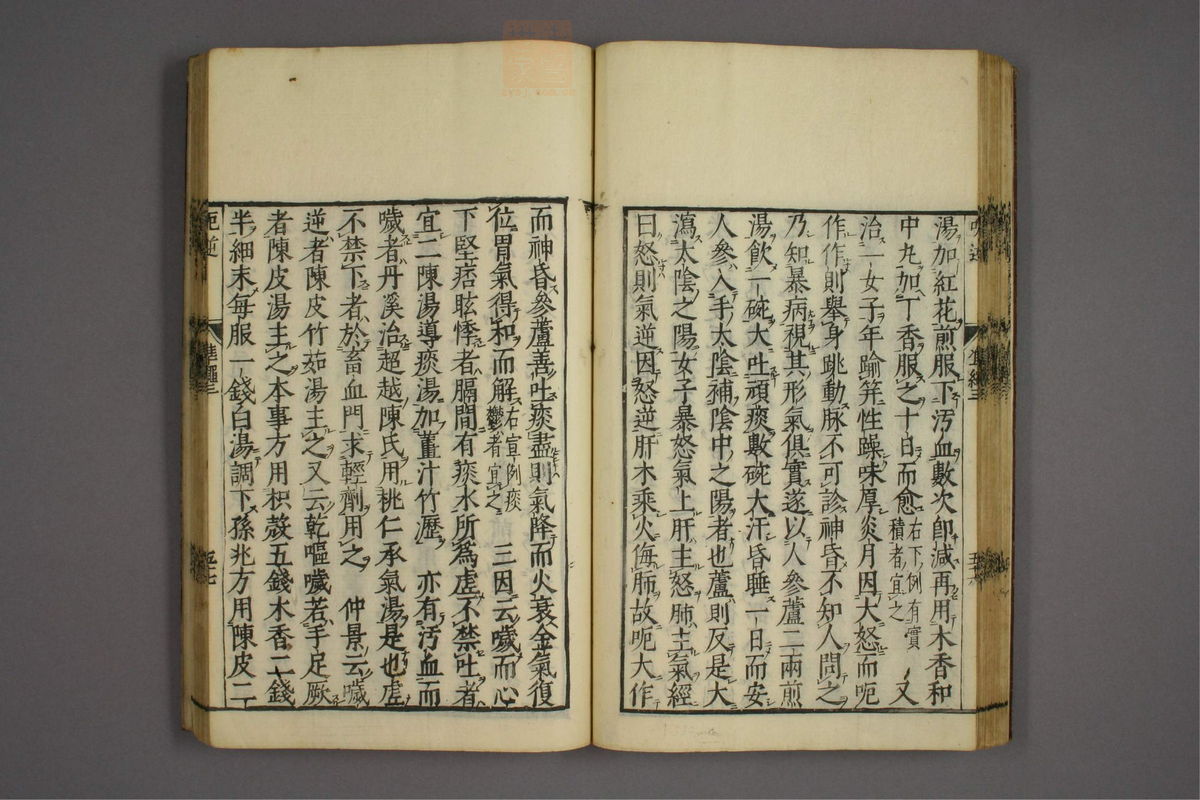 湯加紅花煎服下汚血數次卽減再用木香和
中丸加丁香服之十日而愈右下例有實積者宜之 又
治一女子年踰筓性躁味厚炎月因大怒而呃
作作則舉身跳動脉不可診神昏不知人問之
乃知暴病視其形氣俱實遂以人參蘆二兩煎
湯飲一碗大吐頑痰數碗大汗昏睡一日而安
人參入手太陰補陰中之陽者也蘆則反是大
瀉太陰之陽女子暴怒氣上肝主怒肺主氣經
曰怒則氣逆因怒逆肝木乘火侮肺故呃大作
而神昏參蘆善吐痰盡則氣降而火衰金氣復
位胃氣得和而解右宣例痰鬱者宜之 三因云噦而心
下堅痞眩悸者膈間有痰水所爲虛不禁吐者
宜二陳湯導痰湯加薑汁竹瀝 亦有汚血而
噦者丹溪治超越陳氏用桃仁承氣湯是也虛
不禁下者於畜血門求輕劑用之 仲景云噦
逆者陳皮竹茹湯主之又云乾嘔噦若手足厥
者陳皮湯主之本事方用枳殼五錢木香二錢
半細末每服一錢白湯調下孫兆方用陳皮二
呃逆
準繩三
五七